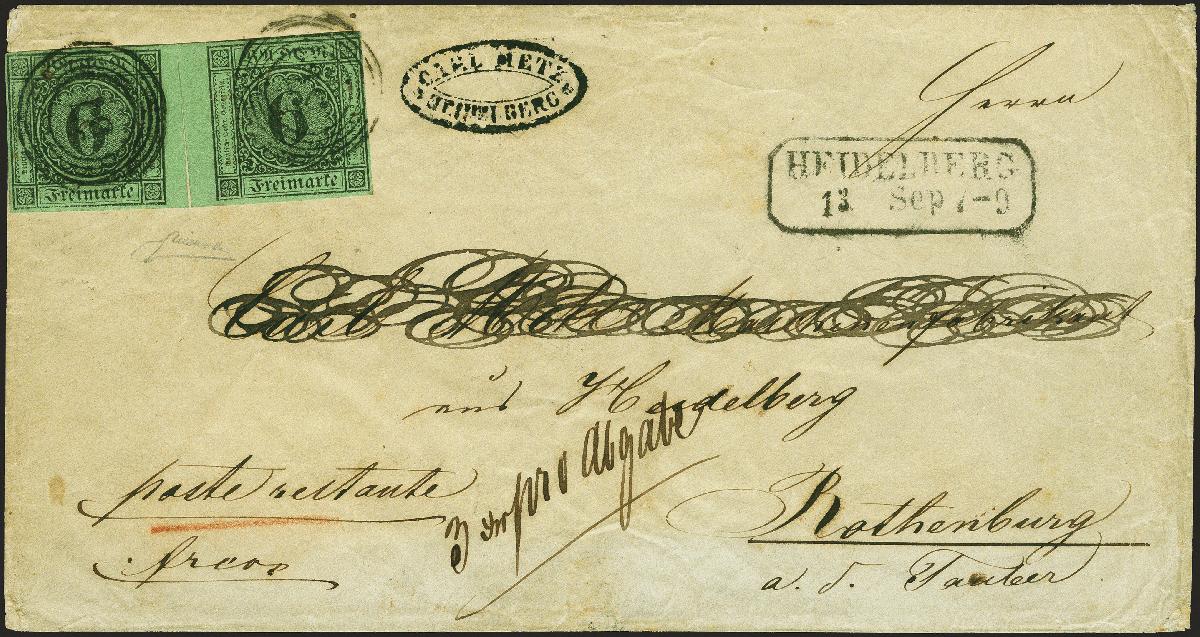 6 6
Freimarte Freimarte
CARL METZ
HEIDELBERG
Herrn
HEIDELBERG
13 Sep 7-9
Carl Metz Maschinenfabrikant
aus Heidelberg
poste restante
3 pro Abgabe
Rothenburg
a. d. Tauber